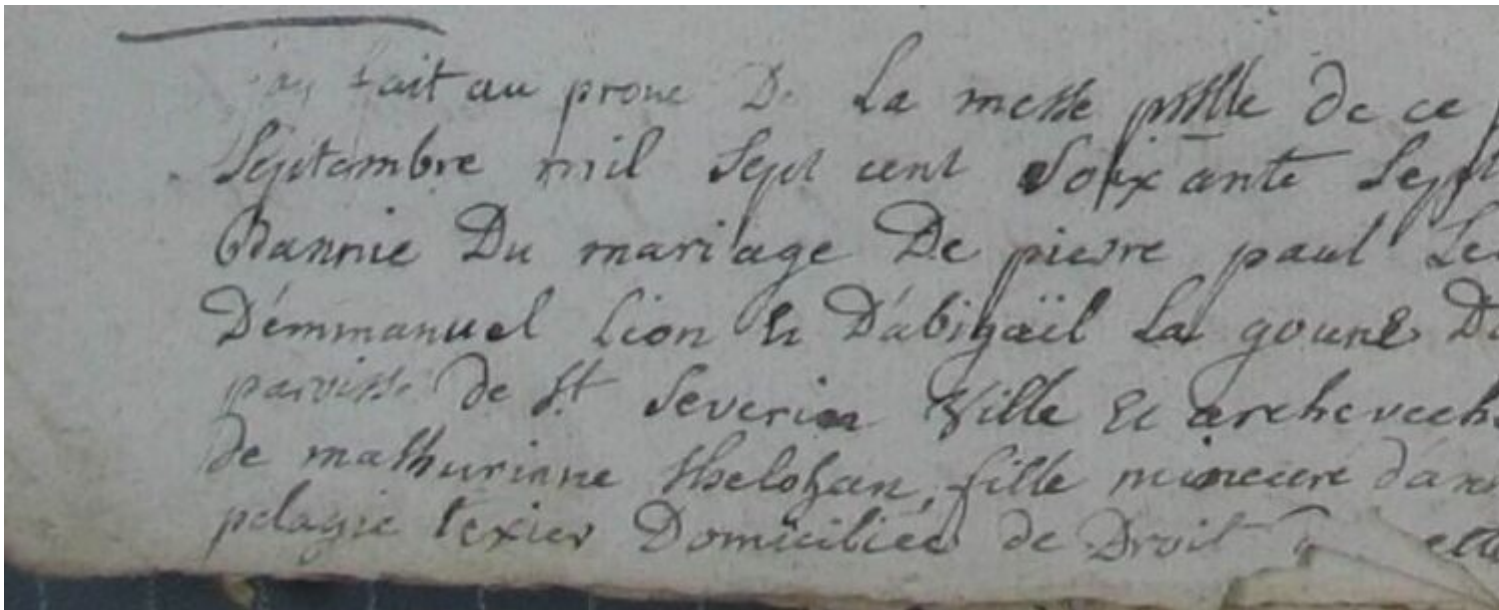 fait au prone De La messe pnlle de ce
Septembre mil Sept cent Soixante Sept
Bannie Du mariage De pierre paul
D'emmanuel Lion Et D'abigaïl La goune
parroisse de St Severin Ville Et archevech
de mathurinne thelohan, fille mineure d'an
pelagie texier Domiciliée de Droit